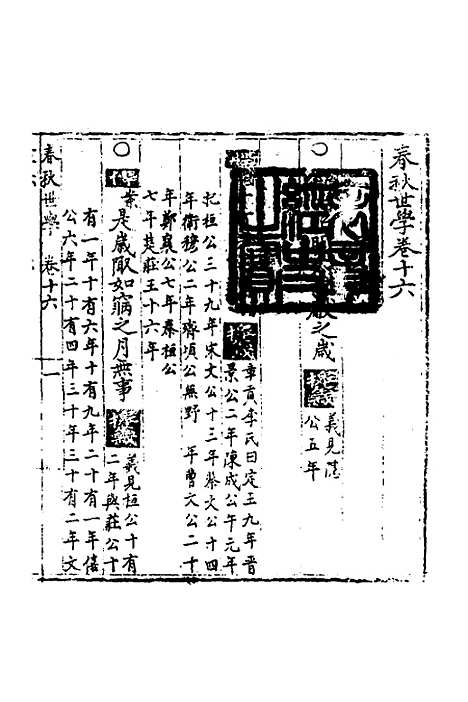 春秋世學卷十六
之歲
義見隱
公五年
章貢李氏曰定王九年晉
景公二年陳成公午元年
杞桓公三十九年宋文公十三年蔡文公十四
年衛穆公二年齊頃公無野 年曹文公二十
年鄭襄公七年秦桓公
七年楚莊王十六年
是歲陬如窩之月無事
義見桓公十有
二年與莊公十
有一年十有六年十有九年二十有一年僖
公六年二十有四年三十年三十有二年文
春秋世學 卷十六 一